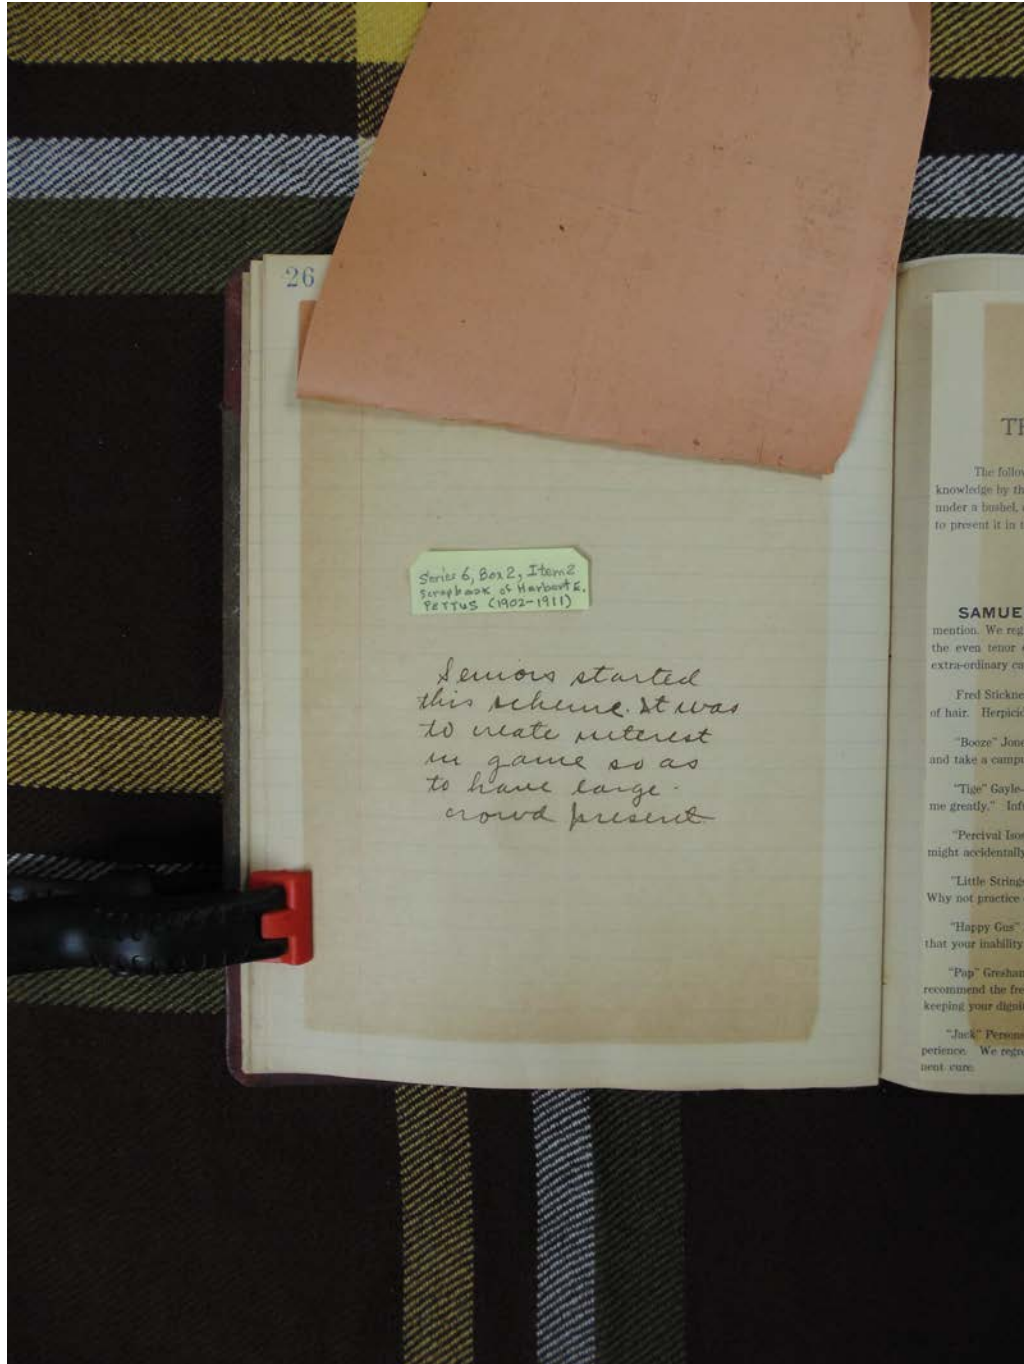 26
Series 6, Box 2, Item 2
Scrapbook of Harbert E.
PETTUS (1902-1911)
Seniors started
this scheme. It was
to create interest
in game so as
to have large
crowd present
The follow
knowledge by th
under a bushel,
to present it in
SAMUE
mention. We reg
the even tenor
extra-ordinary ca
Fred Stickne
of hair. Herpicid
"Booze" Jone
and take a campu
"Tige" Gayle-
me greatly." Inf
"Percival Isos
might accidentally
"Little Strings
Why not practice
"Happy Gus"
that your inability
"Pap" Gresham
recommend the fre
keeping your digni
"Jack" Persons
perience. We regre
nent cure.